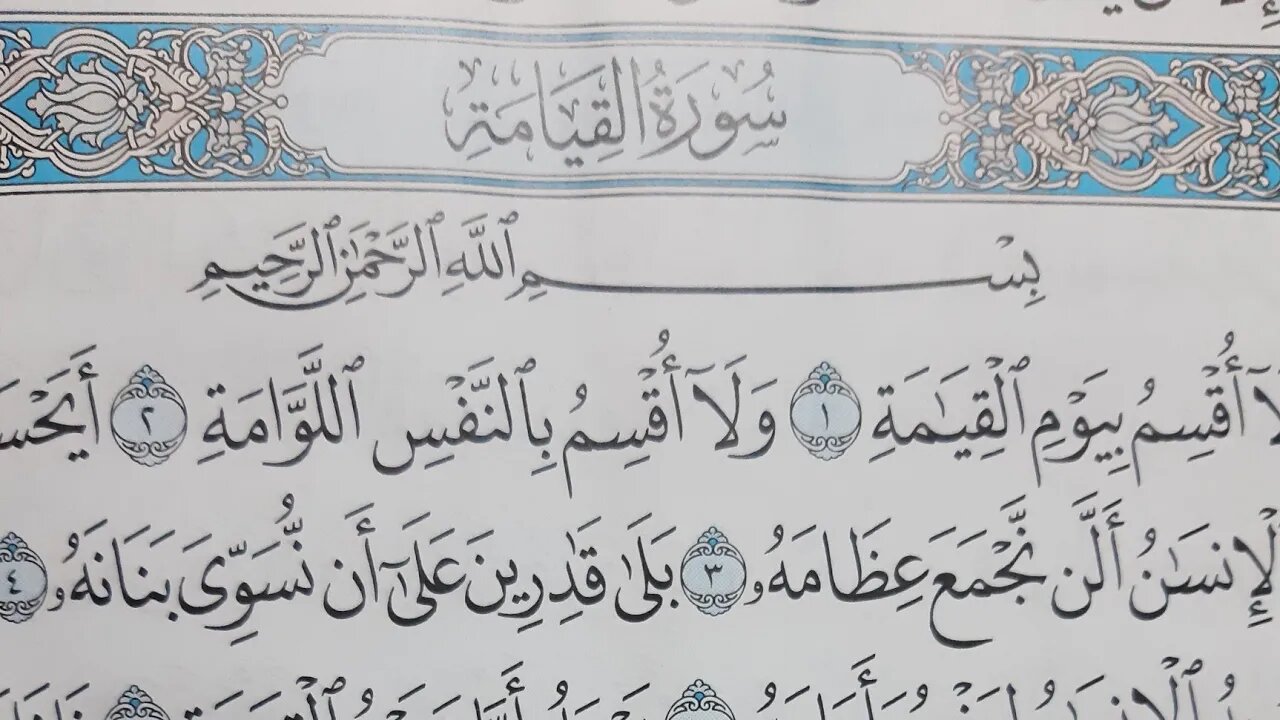 سُورَةُ القِيَامَةِ
بِسْمِ ٱللَّهِ ٱلرَّحْمَٰنِ ٱلرَّحِيمِ
لَآ أُقْسِمُ بِيَوْمِ ٱلْقِيَٰمَةِ ١ وَلَآ أُقْسِمُ بِٱلنَّفْسِ ٱللَّوَّامَةِ ٢ أَيَحْسَ
لْإِنسَٰنُ أَلَّن نَّجْمَعَ عِظَامَهُۥ ٣ بَلَىٰ قَٰدِرِينَ عَلَىٰٓ أَن نُّسَوِّىَ بَنَانَهُۥ ٤